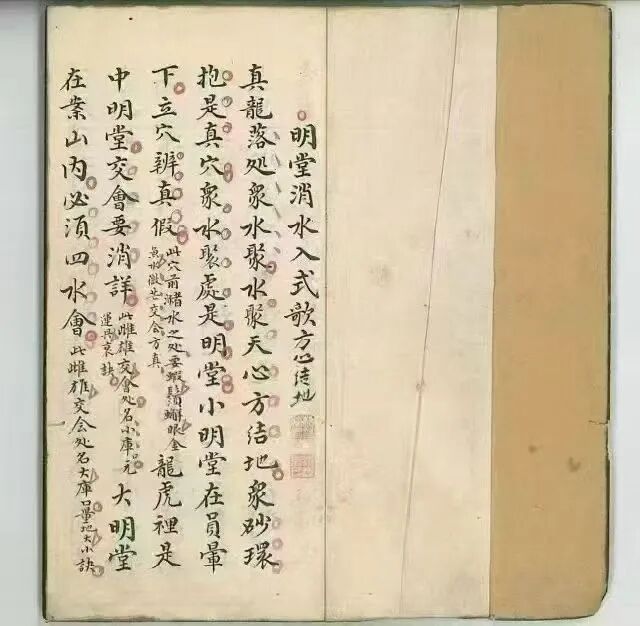 明堂消水入式歌方心结地
真龍落处衆水聚水聚天心方结地衆砂環
抱是真穴衆水聚處是明堂小明堂在員暈
下立穴辨真假
此穴前潴水之处要蝦鬚蠏眼金
魚水微茫交会方真
龍虎裡是
中明堂交會要消詳
此雌雄交會处名小庫口元
運興衰訣
大明堂
在案山内必須四水會此雌雄交会处名大庫口量地大小訣